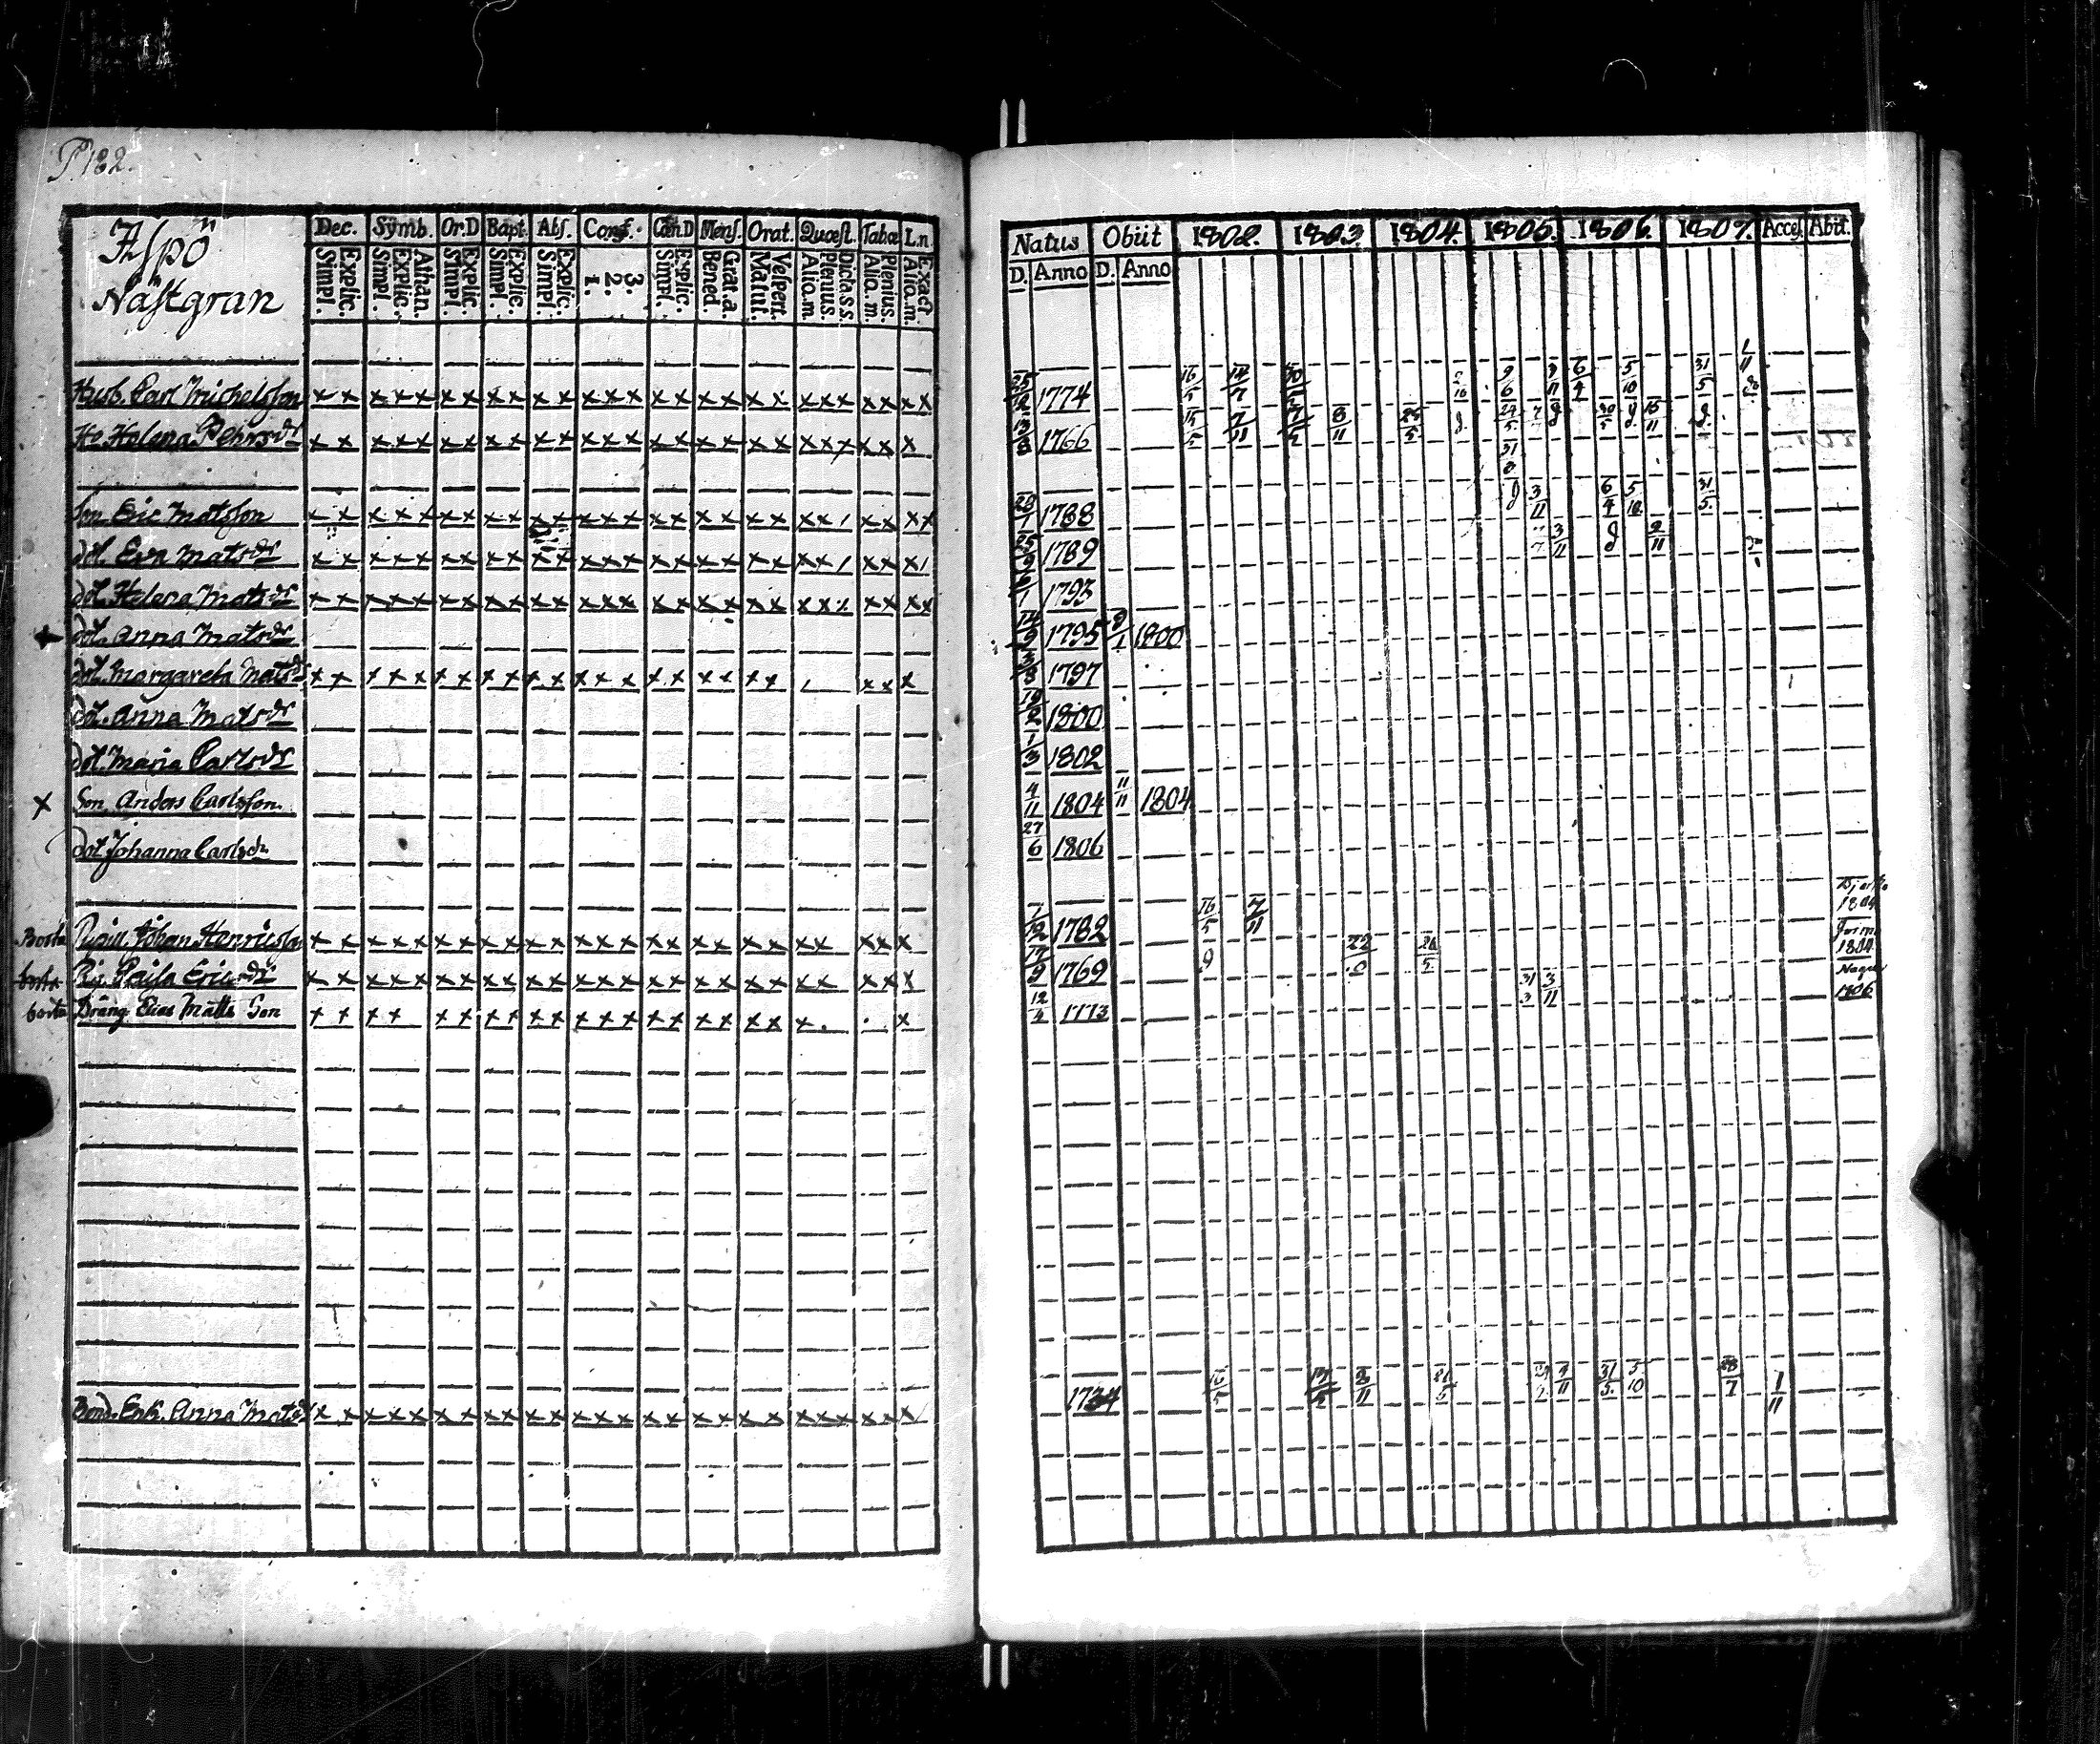 P. 182.
Aspö
Nästgran
Dec. Symb. Or.D Bapt. Abs. Conf. Cœn D Mens. Orat. Quæst. Tabœ L.n
Explic. Simpl. Athan. Explic. Simpl. Explic. Simpl. Explic. Simpl. Explic. Simpl. 3. 2. 1. Explic. Simpl. Grat. a. Bened. Vespert. Matut. Dicta s.s. Plenius Alio. m. Plenius. Alio. m. Exact. Alio. m.
Husb. Carl Michelsson x x x x x x x x x x x x x x x x x x x x x x x x x x x
H. Helena Pehrsdr x x x x x x x x x x x x x x x x x x x x x x x x x x
Son Eric Matsson x x x x x x x x x x x x x x x x x x x x x x / x x x x
dot. Eva Matsdr x x x x x x x x x x x x x x x x x x x x x x / x x x /
dot. Helena Matsdr x x x x x x x x x x x x x x x x x x x x x x x x x x
dot. Anna Matsdr
dot. Margareta Matsdr x x x x x x x x x x x x x x x x x x x x / x x x
dot. Anna Matsdr
dot. Maria Carlsdr
x Son Anders Carlsson.
dot Johanna Carlsdr
Borta Johan Henricsson x x x x x x x x x x x x x x x x x x x x x x x x x
borta Pig. Caisa Ericsdr x x x x x x x x x x x x x x x x x x x x x x x x x
borta Dräng Elias Matts Son x x x x x x x x x x x x x x x x x x x x x
Enk. Anna Matsdr x x x x x x x x x x x x x x x x x x x x x x x x x x
Natus Obiit 1802. 1803. 1804. 1805. 1806. 1807. Acces. Abit.
D. Anno D. Anno
1774 16/5
1766 15/5 7/11 8/11 25/5
1788 3/11 6/4 5/10 31/5
1789 3/11
1793
14/9 1795 8/1 1800
1797
1800
1/3 1802
4/11 1804 11/11 1804
27/6 1806
1782 16/5 7/11 1804
1769 1804
12/4 1773 31/3 3/11 Nagu 1806
1734 16/5 8/11 31/5 5/10 28/7 1/11